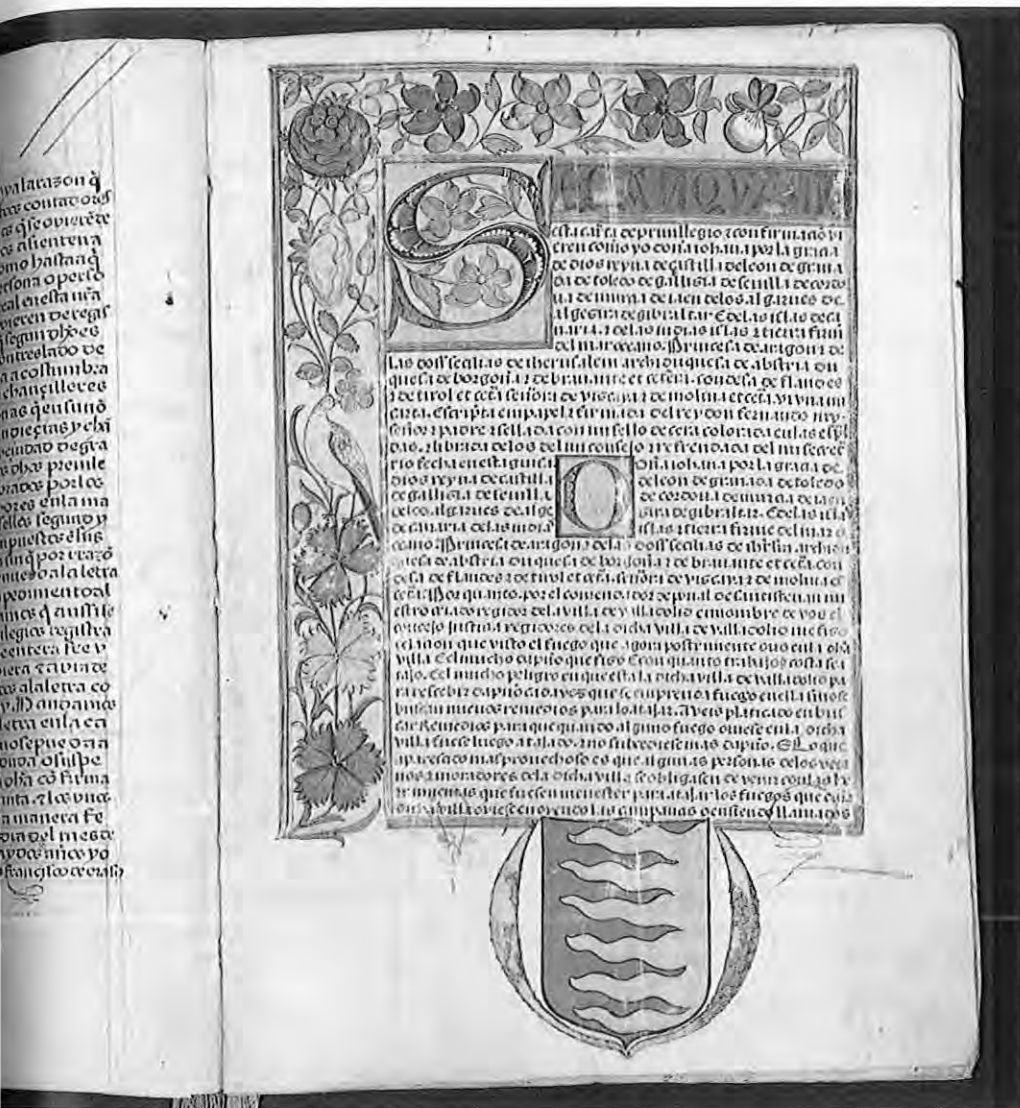 ypa la razon q̃
tres contadores
os q̃ se ovierẽ de
os asienten a
omo hasta aq̃
rsona o perso
eal en esta ñra
vieren de regis
segun dhos es
ntreslado de
a acostumbra
chançilleres
nas q̃ en suno
ndieçias y chã
pendad de gra
s dhos preuile
brados por los
ores en la ma
sellos segund y
npuestos ẽ sus
sin q̃ por razõ
nueuo a la letra
pedimiento al
años q̃ ansi se
legios registra
entera fee y
iera
os a la letra co
y. Mandamos
letra en la ca
no se pueda
duda o suspe
dha cõ firma
a manera fe
dia del mes de
y dos años yo
françisco de eraso
SEPAN QUAN
esta carta de preuillegio z confirmaçõ vi
eren como yo doña iohana por la graçia
de dios reyna de castilla de leon de grana
da de toledo de gallizia de seuilla de cordo
ua de murçia de iaen de los algarues de
algezira de gibraltar E de las islas de ca
naria z de las indias islas z tierra firme
del mar oçeano. Prinçesa de aragon z de
las dos seçilias de iherusalem archiduquesa de abstria du
quesa de borgoña z de brauante et cetera. condesa de flandes
z de tirol et cetã señora de vizcaya z de molina et cetã. vi vna mi
carta. escripta en papel z firmada del rey don fernando my
señor z padre z sellada con mi sello de çera colorada en las espal
das. z librada de los del mi consejo z refrendada del mi secret
rio fecha en esta guisa Doña iohana por la graçia de
dios reyna de castilla de leon de granada de toledo
de gallizia de seuilla de cordoua de murçia de iaen
de los algarues de alge zira de gibraltar. E de las isla
de canaria de las indias islas z tierra firme del mar o
çeano. Prinçesa de aragon z de las dos seçilias de ihrlm archidu
quesa de abstria duquesa de borgoña z de brauante et cetã. con
desa de flandes z de tirol et cetã. señora de vizcaya z de molina et
cetã. Por quanto. por el comendador de santisteuan mi
criado z regidor de la villa de valladolid en nombre de vos el
conçejo justiçia regidores de la dicha villa de valladolid me fizo
relaçion que visto el fuego que agora postrimente ouo en la dha
villa E el mucho dapño que fizo E con quanto trabajo z costa se a
tajo. E el mucho peligro en que esta la dicha villa de valladolid pa
ra resçebir dapño cada ves que se emprenda fuego en ella si no se
buscan nueuos remedios para lo atajar. Aveis platicado en bus
car Remedios para que quando algund fuego ouiese en la dicha
villa fuese luego atajado. z no subçediese mas dapño. E lo que
paresçido mas prouechoso es que algunas personas de los vezi
nos z moradores de la dicha villa se obligasen de venir con las he
rramientas que fuesen menester para atajar los fuegos que en la
dicha villa oviese en oyendo las campanas o en siendo llamados